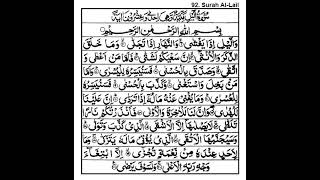 92. Surah Al-Lail
بِسْمِ اللهِ الرَّحْمٰنِ الرَّحِيْمِ
وَالَّيْلِ اِذَا يَغْشٰى ۝ وَالنَّهَارِ اِذَا تَجَلّٰى ۝ وَمَا خَلَقَ
الذَّكَرَ وَالْاُنْثٰٓى ۝ اِنَّ سَعْيَكُمْ لَشَتّٰى ۝ فَاَمَّا مَنْ اَعْطٰى
وَاتَّقٰى ۝ وَصَدَّقَ بِالْحُسْنٰى ۝ فَسَنُيَسِّرُهٗ لِلْيُسْرٰى ۝ وَاَمَّا
مَنْۢ بَخِلَ وَاسْتَغْنٰى ۝ وَكَذَّبَ بِالْحُسْنٰى ۝ فَسَنُيَسِّرُهٗ
لِلْعُسْرٰى ۝ وَمَا يُغْنِيْ عَنْهُ مَالُهٗٓ اِذَا تَرَدّٰى ۝ اِنَّ عَلَيْنَا
لَلْهُدٰى ۝ وَاِنَّ لَنَا لَلْاٰخِرَةَ وَالْاُوْلٰى ۝ فَاَنْذَرْتُكُمْ نَارًا
تَلَظّٰى ۝ لَا يَصْلٰىهَآ اِلَّا الْاَشْقَى ۝ الَّذِيْ كَذَّبَ وَتَوَلّٰى ۝
وَسَيُجَنَّبُهَا الْاَتْقَى ۝ الَّذِيْ يُؤْتِيْ مَالَهٗ يَتَزَكّٰى ۝ وَمَا
لِاَحَدٍ عِنْدَهٗ مِنْ نِّعْمَةٍ تُجْزٰٓى ۝ اِلَّا ابْتِغَآءَ
وَجْهِ رَبِّهِ الْاَعْلٰى ۝ وَلَسَوْفَ يَرْضٰى ۝